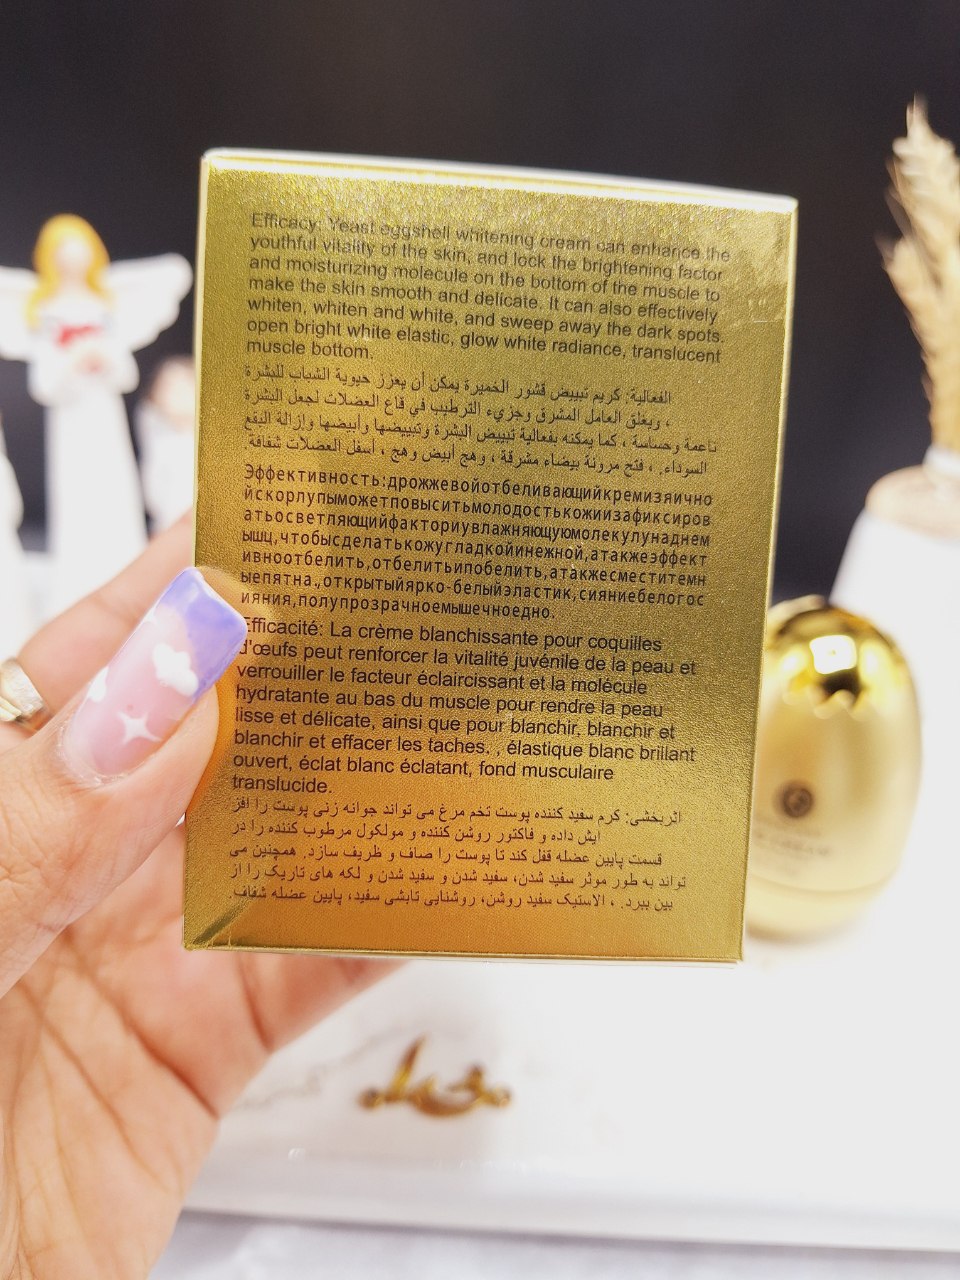 Efficacy: Yeast eggshell whitening cream can enhance the
youthful vitality of the skin, and lock the brightening factor
and moisturizing molecule on the bottom of the muscle to
make the skin smooth and delicate. It can also effectively
whiten, whiten and white, and sweep away the dark spots.
open bright white elastic, glow white radiance, translucent
muscle bottom.
الفعالية: كريم تبييض قشور الخميرة يمكن أن يعزز حيوية الشباب للبشرة
، ويغلق العامل المشرق وجزيء الترطيب في قاع العضلات لجعل البشرة
ناعمة وحساسة ، كما يمكنه بفعالية تبييض البشرة وتبييضها وأبيضها وإزالة البقع
السوداء. ، فتح مرونة بيضاء مشرقة ، وهج أبيض وهج ، أسفل العضلات شفافة.
Эффективность:дрожжевойотбеливающийкремизяично
йскорлупыможетповыситьмолодостькожиизафиксиров
атьосветляющийфакториувлажняющуюмолекулунаднем
ышц,чтобысделатькожугладкойинежной,атакжеэффект
ивноотбелить,отбелитьипобелить,атакжесместитемн
ыепятна.,открытыйярко-белыйэластик,сияниебелогос
ияния,полупрозрачноемышечноедно.
Efficacité: La crème blanchissante pour coquilles
d'œufs peut renforcer la vitalité juvénile de la peau et
verrouiller le facteur éclaircissant et la molécule
hydratante au bas du muscle pour rendre la peau
lisse et délicate, ainsi que pour blanchir, blanchir et
blanchir et effacer les taches. , élastique blanc brillant
ouvert, éclat blanc éclatant, fond musculaire
translucide.
اثربخشی: کرم سفید کننده پوست تخم مرغ می تواند جوانه زنی پوست را افز
ایش داده و فاکتور روشن کننده و مولکول مرطوب کننده را در
قسمت پایین عضله قفل کند تا پوست را صاف و ظریف سازد. همچنین می
تواند به طور موثر سفید شدن، سفید شدن و سفید شدن و لکه های تاریک را از
بین ببرد. ، الاستیک سفید روشن، روشنایی تابشی سفید، پایین عضله شفاف.